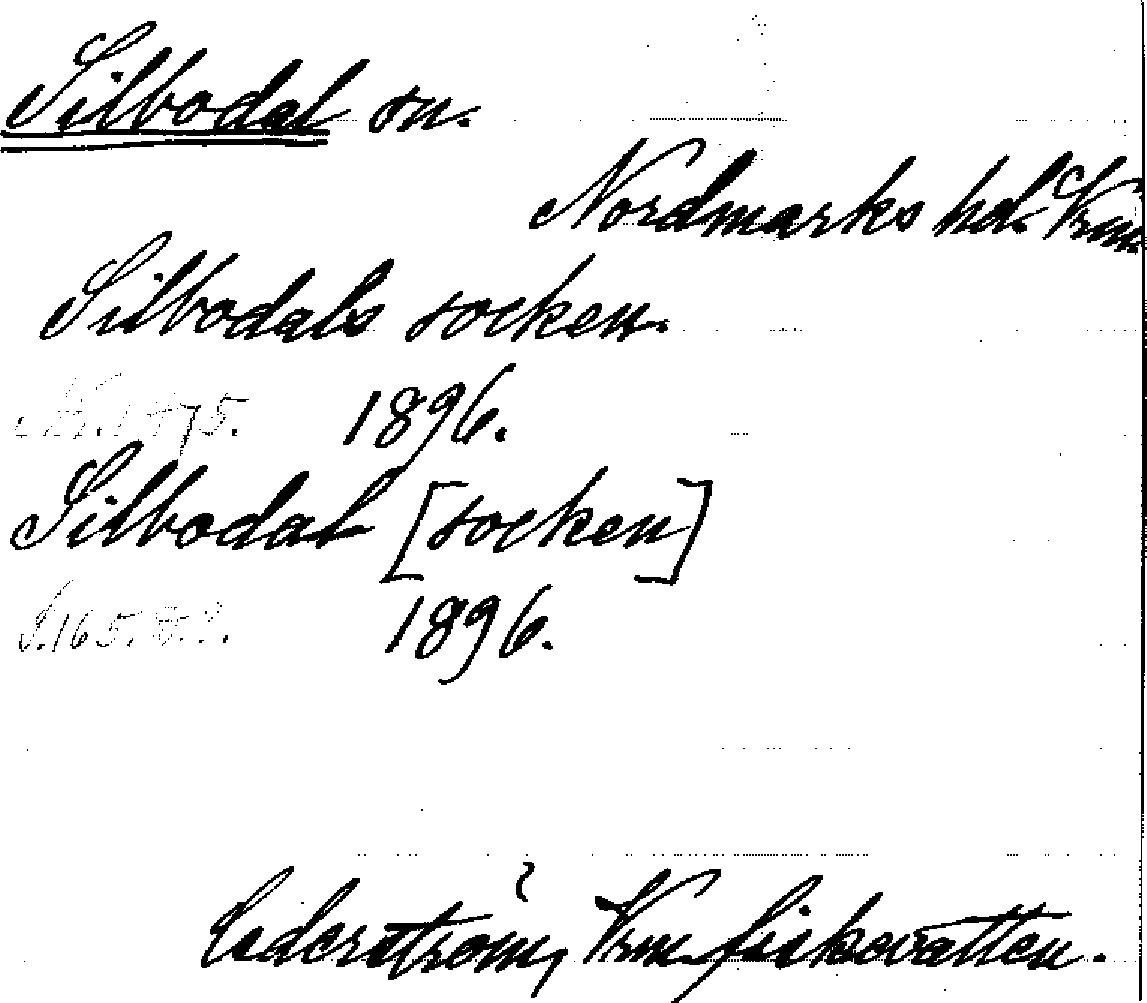 Silbodal sn.
Nordmarks hd. Vrm.
Silbodals socken.
1896.
Silbodal [socken]
1896.
Cederström, Vrm. fiskevatten.